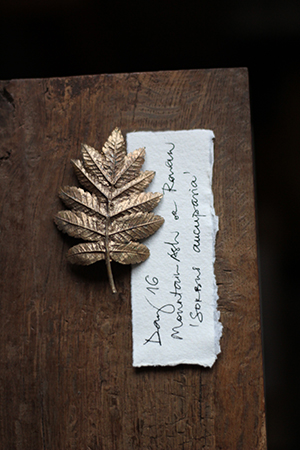 Day 16
Mountain Ash or Rowan
'Sorbus aucuparia'